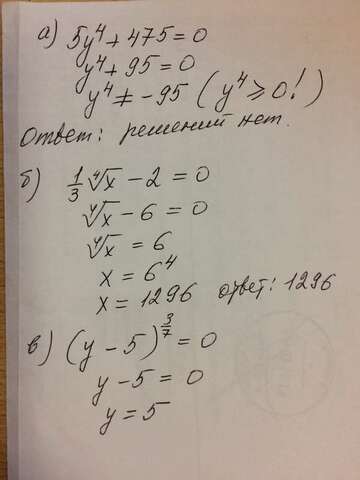 а) 5y⁴ + 475 = 0
y⁴ + 95 = 0
y⁴ ≠ -95 (y⁴ ⩾ 0!)
Ответ: решений нет.
б) 1/3 ∜x - 2 = 0
∜x - 6 = 0
∜x = 6
x = 6⁴
x = 1296 ответ: 1296
в) (y - 5)^(3/7) = 0
y - 5 = 0
y = 5